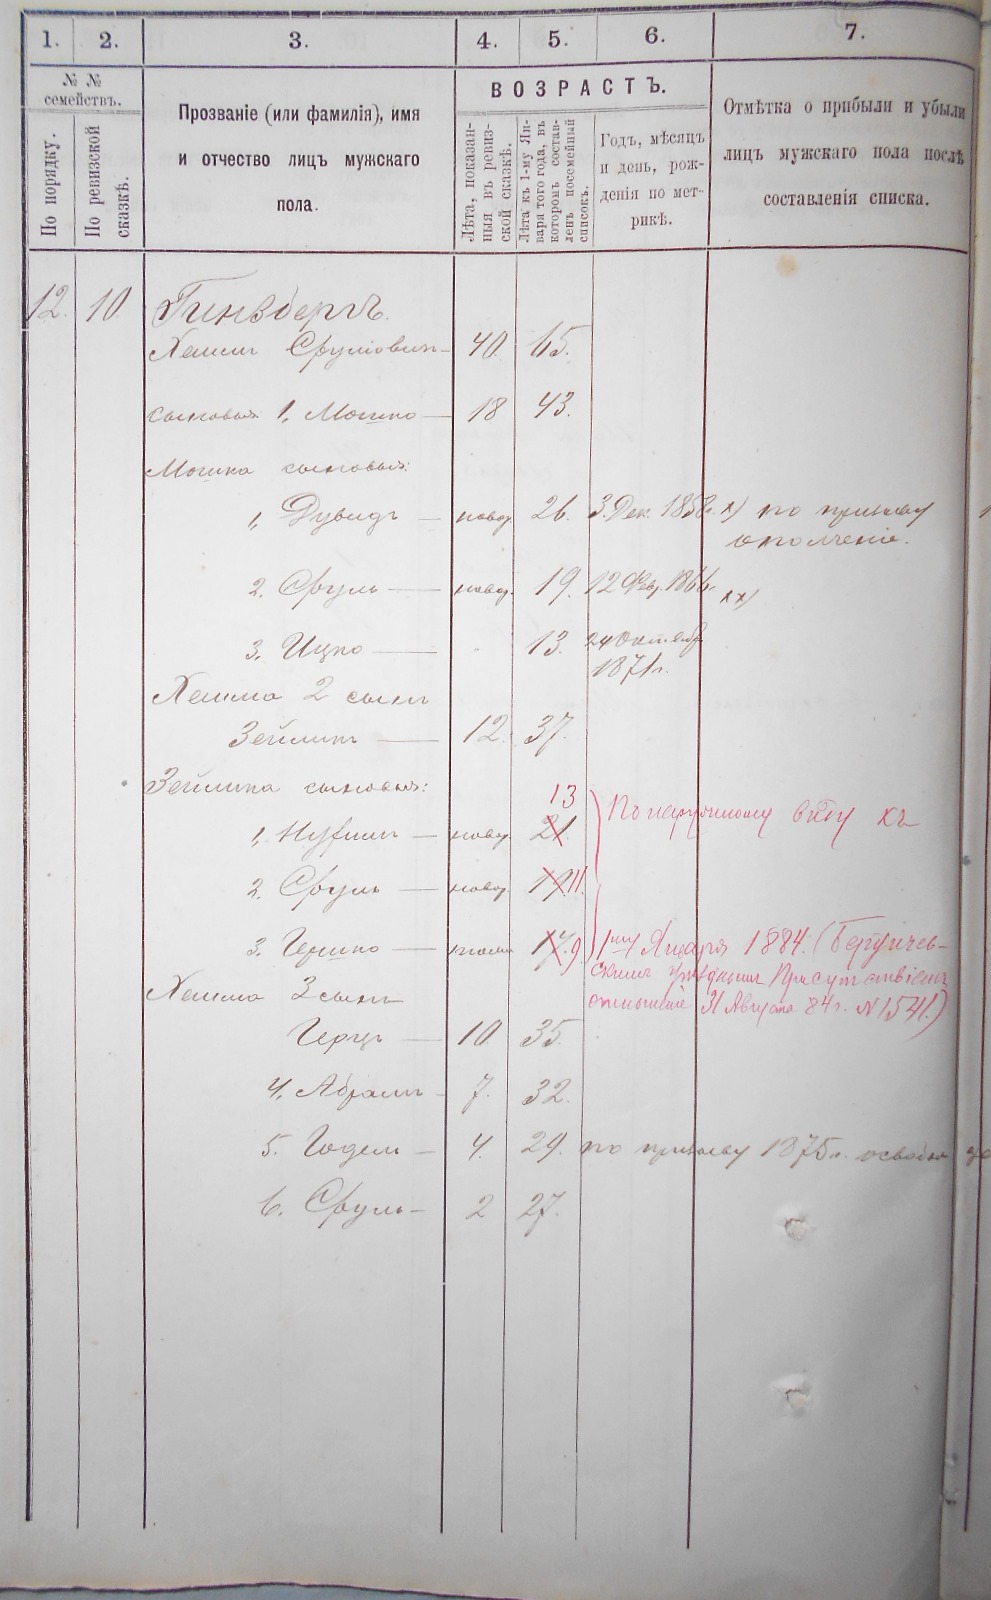 1. 2. 3. 4. 5. 6. 7.
№ №
семействъ.
По порядку.
По ревизской
сказкѣ.
Прозваніе (или фамилія), имя
и отчество лицъ мужскаго
пола.
ВОЗРАСТЪ.
Лѣта, показан-
ныя въ ревиз-
ской сказкѣ.
Лѣта къ 1-му Ян-
варя того года, въ
которомъ состав-
ленъ посемейный
списокъ.
Годъ, мѣсяцъ
и день, рож-
денія по мет-
рикѣ.
Отмѣтка о прибыли и убыли
лицъ мужскаго пола послѣ
составленія списка.
12. 10 Гинзбергъ.
Хаимъ Срулiовичъ 40. 65.
сыновья 1, Мошко 18 43.
Мошка сыновья:
1, Дувидъ новор. 26. 3. Дек. 1858г. х) по призыву
ополченіе.
2. Сруль новор. 19. 12 Февр. 1866г. хх)
3. Ицко 13. 24 Октября
1871г.
Хаима 2 сынъ
Зейликъ 12. 37.
Зейлика сыновья:
13
1, Нухимъ новор. 21. По наружному виду къ
2. Сруль новор. 19. 11.
3. Гершко 17. 9) 1му Января 1884. (Бердичев-
скимъ Уѣзднымъ Присутствіемъ
отношеніе 31 Августа 84 г. № 1541.)
Хаима 3 сынъ
Герцъ 10. 35.
4, Абрамъ 7. 32.
5. Годель 4. 29. по призыву 1875г.
6. Сруль 2 27.